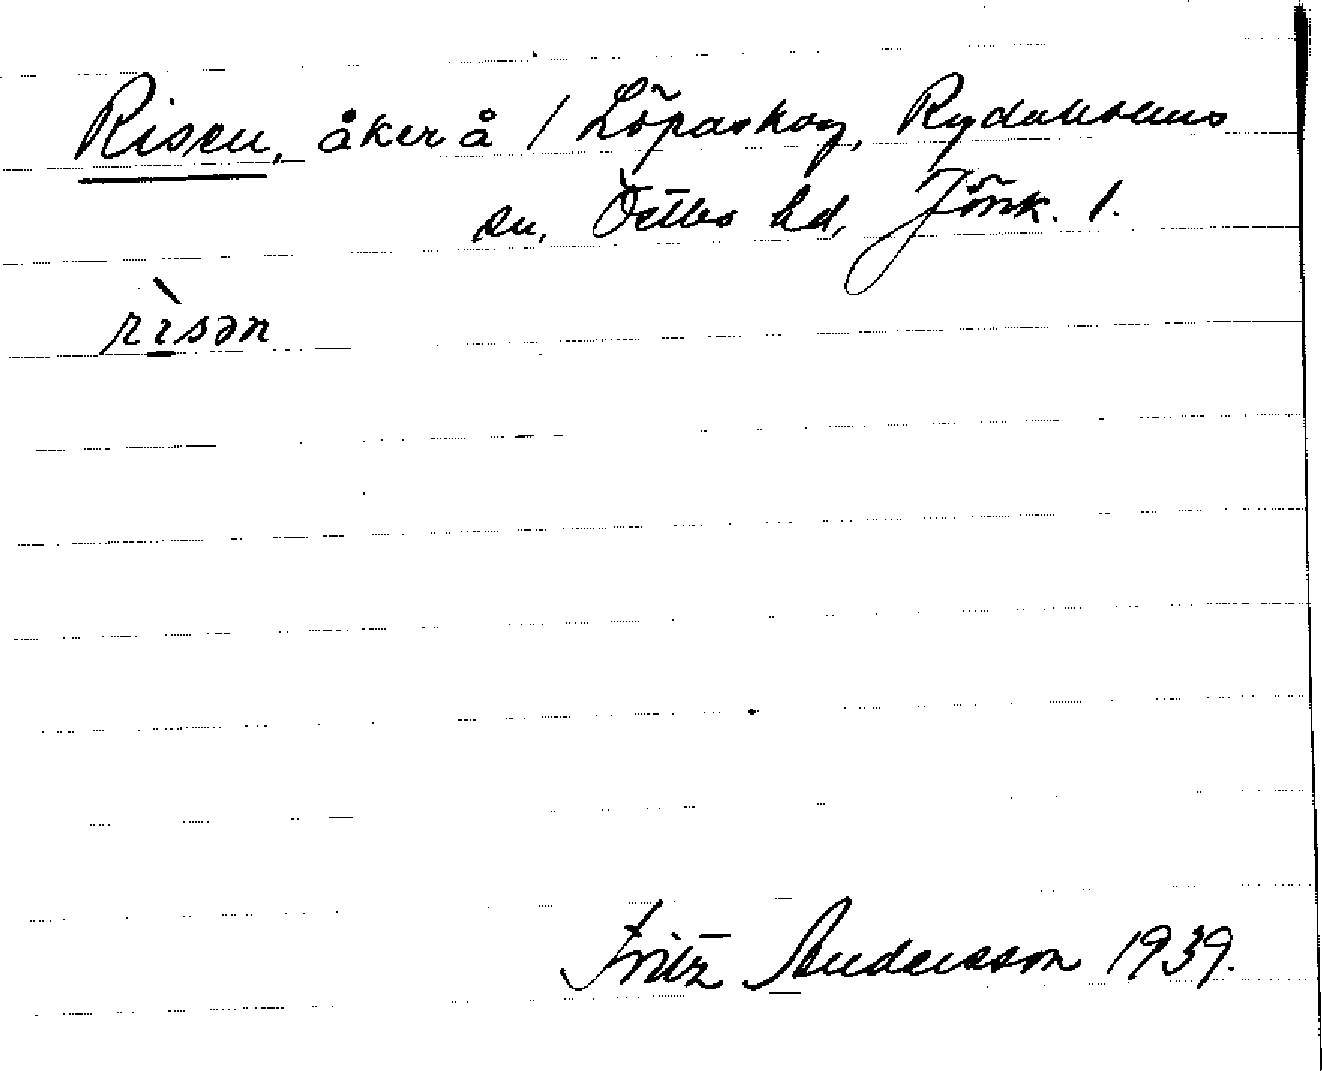 Risen, åker å 1 Löpaskog, Rydaholms
sn, Östbo hd, Jönk. l.
rìsən
Fritz Andersson 1939.